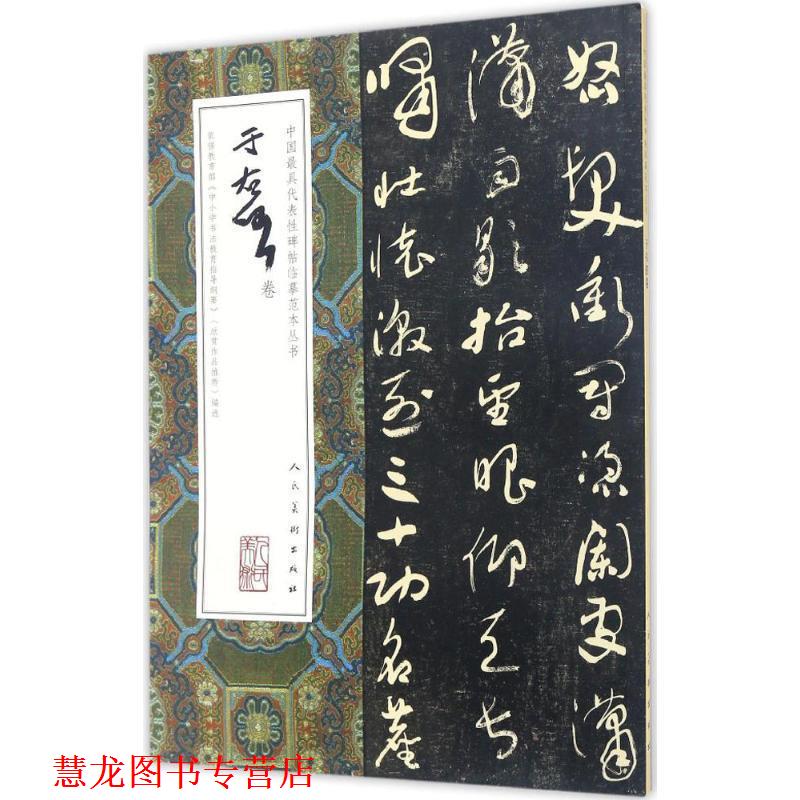 怒髮衝冠凭闌處瀟
瀟雨歇抬望眼仰天長
嘯壯懷激烈三十功名塵
中国最具代表性碑帖临摹范本丛书
于右任
卷
依据教育部《中小学书法教育指导纲要》（欣赏作品推荐）编选
人民美术出版社
慧龙图书专营店